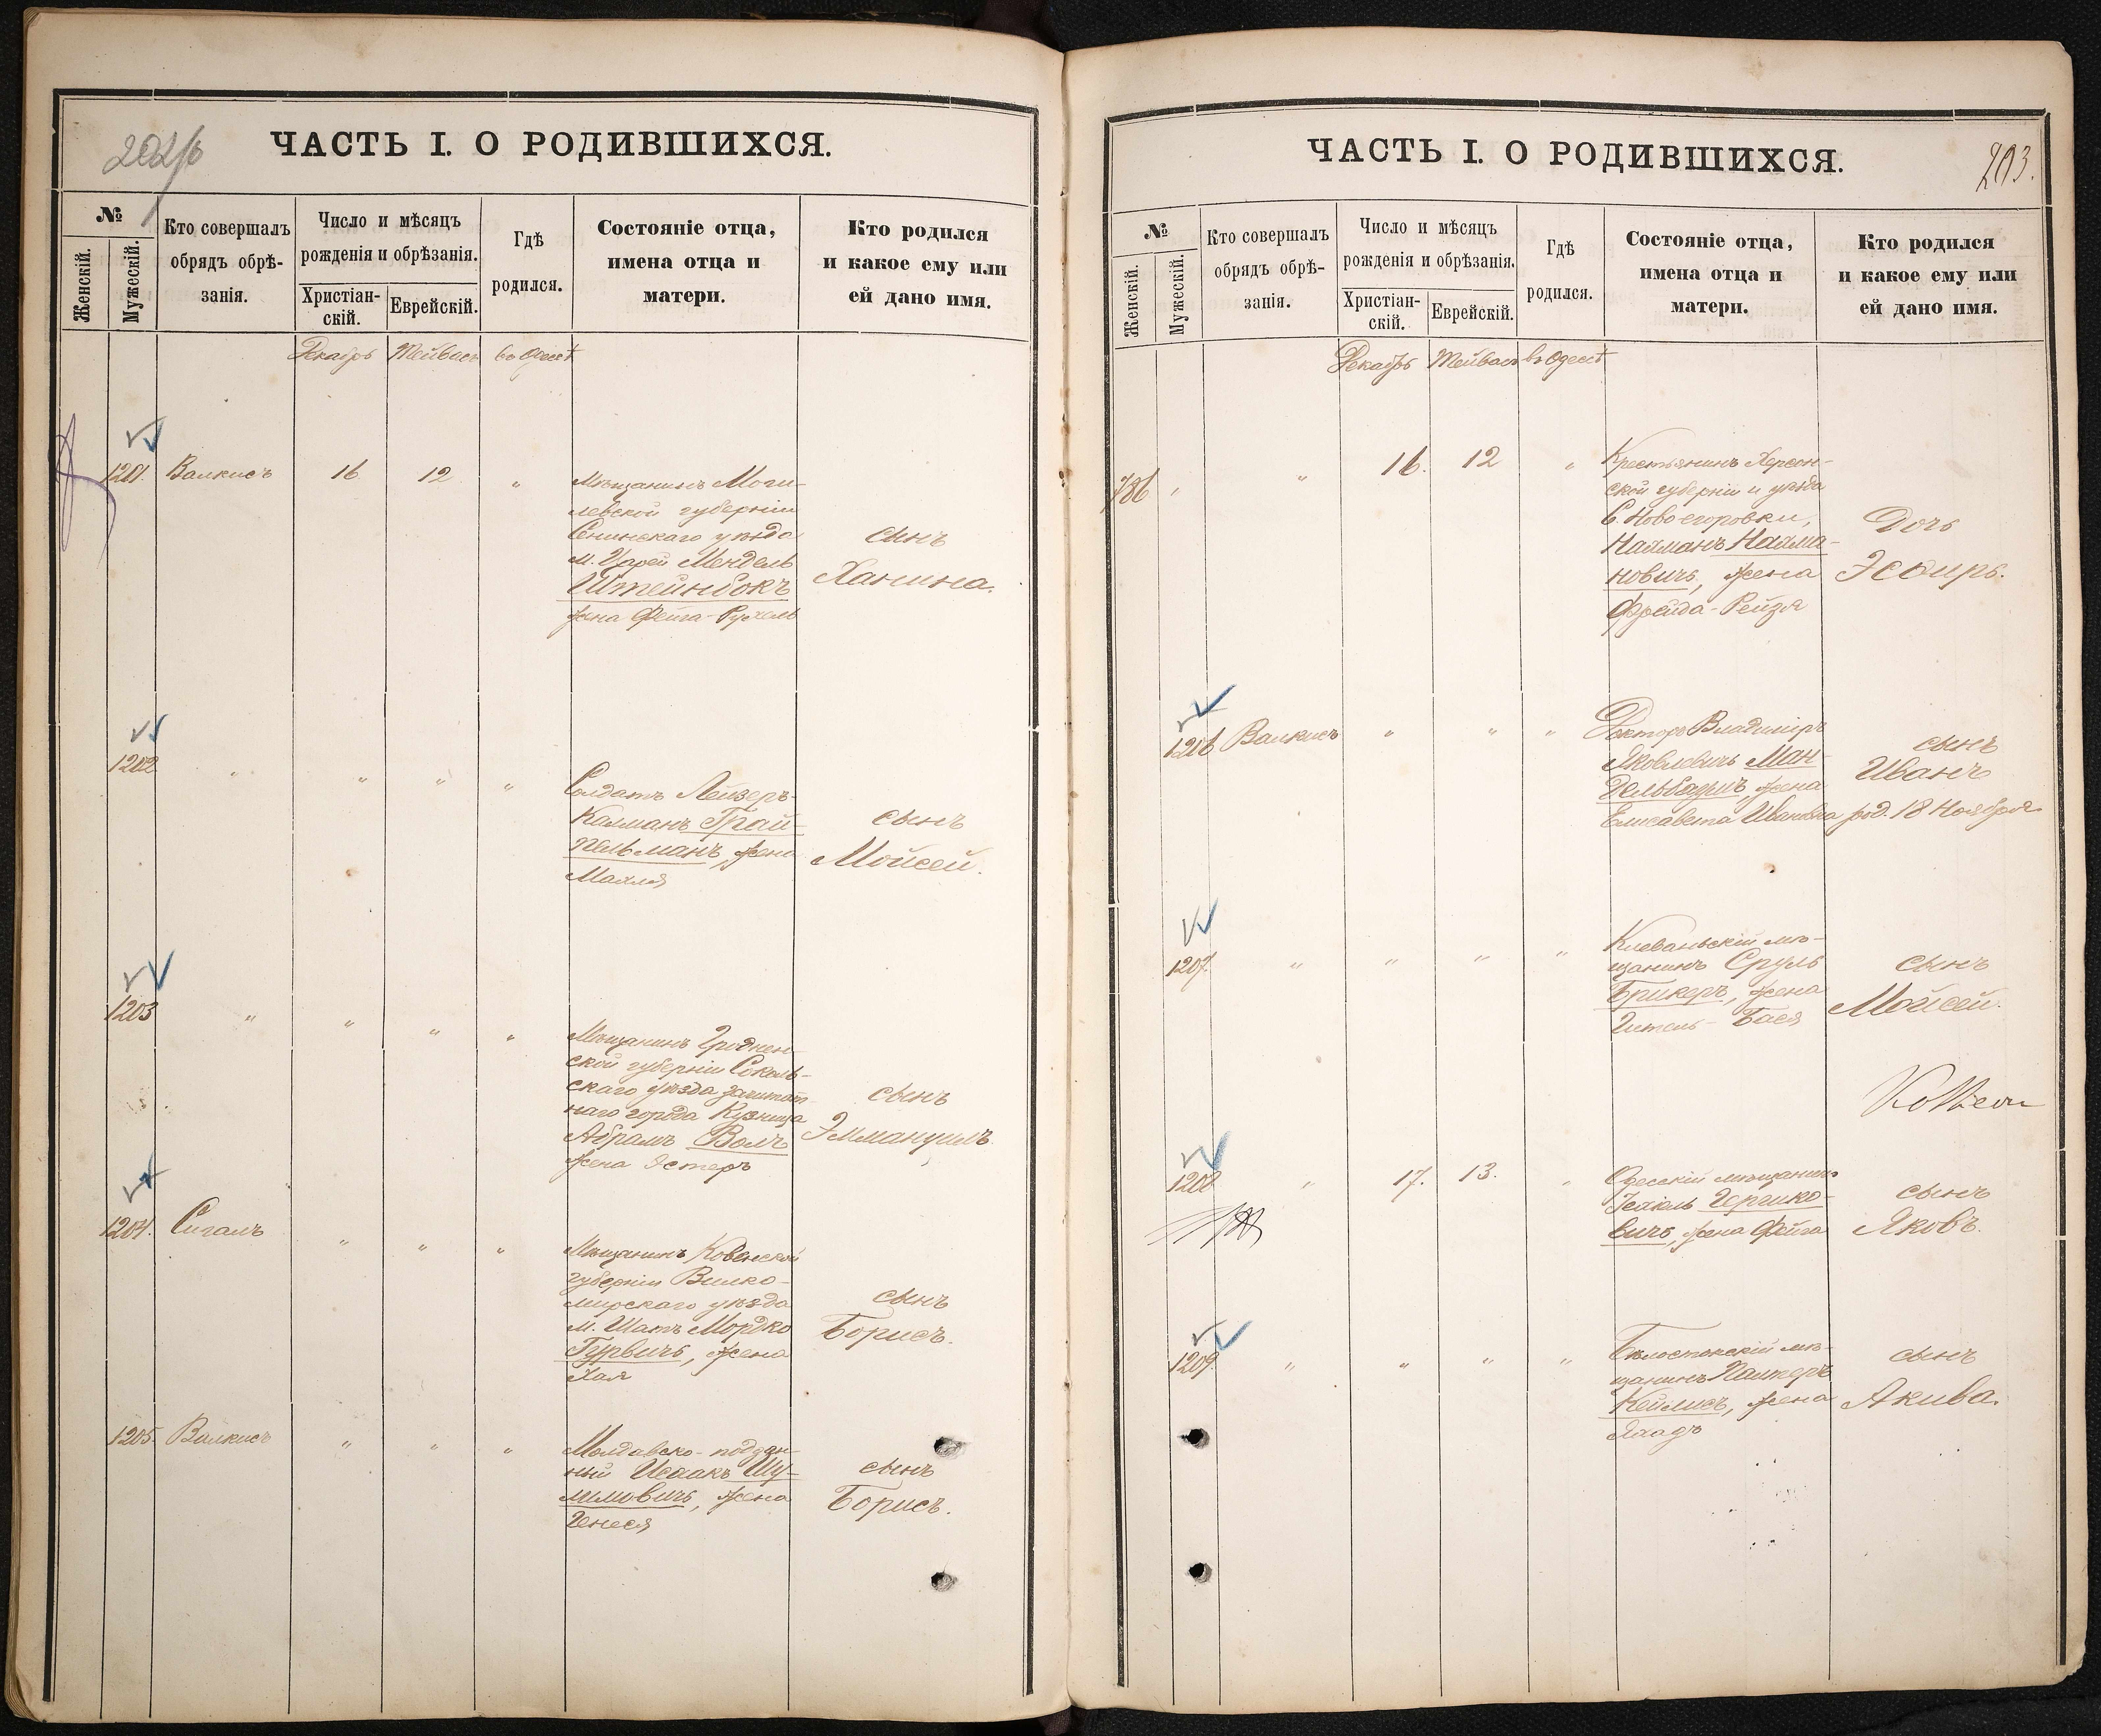 202/б
ЧАСТЬ I. О РОДИВШИХСЯ.
№
Женскій.
Мужескій.
Кто совершалъ
обрядъ обрѣ-
занія.
Число и мѣсяцъ
рожденія и обрѣзанія.
Христіан-
скій.
Еврейскій.
Гдѣ
родился.
Состояніе отца,
имена отца и
матери.
Кто родился
и какое ему или
ей дано имя.
Декабрь Тейвасъ въ Одессѣ
1201. Валкисъ 16 12 "
Мѣщанинъ Моги-
левской губерніи
Сеннинскаго уѣзда
м. Мендель
Штейнбокъ
жена Фейга-Рухель
сынъ
Ханина.
1202 " " " "
Солдатъ Лейзеръ-
Калманъ Трай-
тельманъ, жена
Малля
сынъ
Мойсей.
1203 " " " "
Мѣщанинъ Гроднен-
ской губерніи Соколь-
скаго уѣзда заштат
наго города Кузница
Абрамъ Волъ
жена Эстеръ
сынъ
Эммануилъ.
1204. Сигалъ " " "
Мѣщанинъ Ковенской
губерніи Вилко-
мирскаго уѣзда
м. Шатъ Мордко
Гурвичъ, жена
Хая
сынъ
Борисъ.
1205. Валкисъ " " "
Молдавско-поддан-
ный Исаакъ Шу-
лимовичъ, жена
Генеся
сынъ
Борисъ.
203.
ЧАСТЬ I. О РОДИВШИХСЯ.
№
Женскій.
Мужескій.
Кто совершалъ
обрядъ обрѣ-
занія.
Число и мѣсяцъ
рожденія и обрѣзанія.
Христіан-
скій.
Еврейскій.
Гдѣ
родился.
Состояніе отца,
имена отца и
матери.
Кто родился
и какое ему или
ей дано имя.
Декабрь Тейвасъ въ Одессѣ
786 " " 16. 12 "
Крестьянинъ Херсон-
ской губерніи и уѣзда
С. Новоегоровки,
Найманъ Найма-
новичъ, жена
Фрейда-Рейзя
Дочь
Эсѳирь.
1206 Валкисъ " " "
Докторъ Владиміръ
Яковлевичъ Ман-
дельбаумъ, жена
Елисавета Ивановна
сынъ
Иванъ
род. 18 Ноября
1207. " " " "
Клеваньскій мѣ-
щанинъ Сруль
Брикеръ, жена
Гитель-Бася
сынъ
Мойсей.
1208 " 17. 13. "
Одесскій мѣщанинъ
Гершко-
вичъ, жена Фейга
сынъ
Яковъ.
1209 " " " "
Бѣлостокскій мѣ-
щанинъ Палтеръ
Кеймисъ, жена
сынъ
Акива.